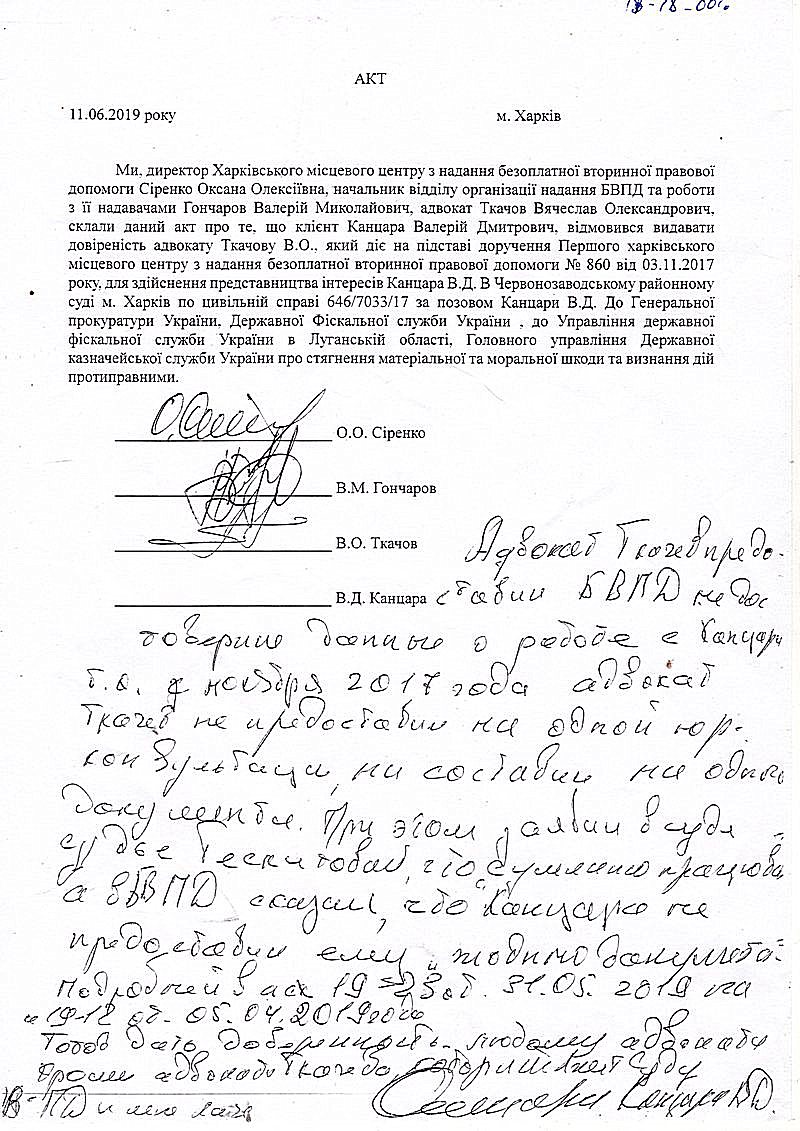 АКТ
11.06.2019 року м. Харків
Ми, директор Харківського місцевого центру з надання безоплатної вторинної правової
допомоги Сіренко Оксана Олексіївна, начальник відділу організації надання БВПД та роботи
з її надавачами Гончаров Валерій Миколайович, адвокат Ткачов Вячеслав Олександрович,
склали даний акт про те, що клієнт Канцара Валерій Дмитрович, відмовився видавати
довіреність адвокату Ткачову В.О., який діє на підставі доручення Першого харківського
місцевого центру з надання безоплатної вторинної правової допомоги № 860 від 03.11.2017
року, для здійснення представництва інтересів Канцара В.Д. В Червонозаводському районному
суді м. Харків по цивільній справі 646/7033/17 за позовом Канцари В.Д. До Генеральної
прокуратури України, Державної Фіскальної служби України , до Управління державної
фіскальної служби України в Луганській області, Головного управління Державної
казначейської служби України про стягнення матеріальної та моральної шкоди та визнання дій
протиправними.
О.О. Сіренко
В.М. Гончаров
В.О. Ткачов
Адвокат Ткачев предо-
В.Д. Канцара
ставил БВПД не дос
данные о работе с Канцара
т.о. с ноября 2017 года адвокат
Ткачев не предоставил ни одной юр-
консультации, ни составил ни одного
документа. При этом заявил в суде
судье что сумлінно працював
а в БВПД сказал, что Канцара не
предоставил ему жодного документа.
19-23 от 31.05.2019 на
19-12 от 05.04.2019 года
Готов дать доверенность любому адвокату
кроме адвоката Ткачева
Канцара В.Д.